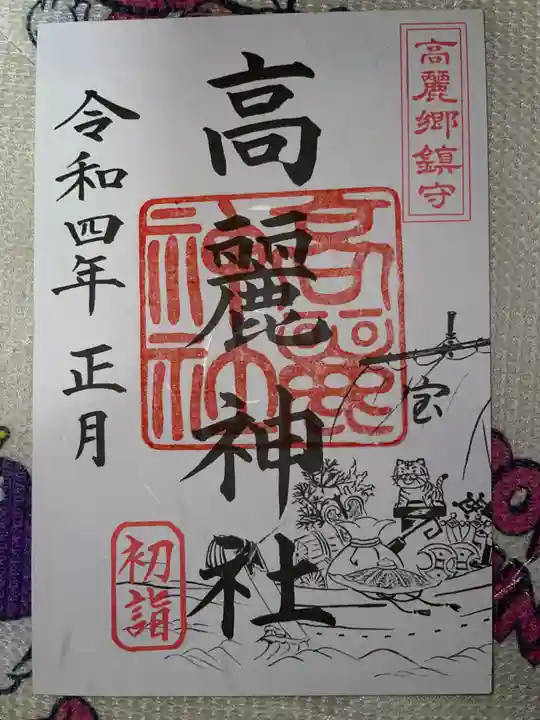 高麗郷鎮守
高麗神社
高麗神社
令和四年 正月
宝
初詣